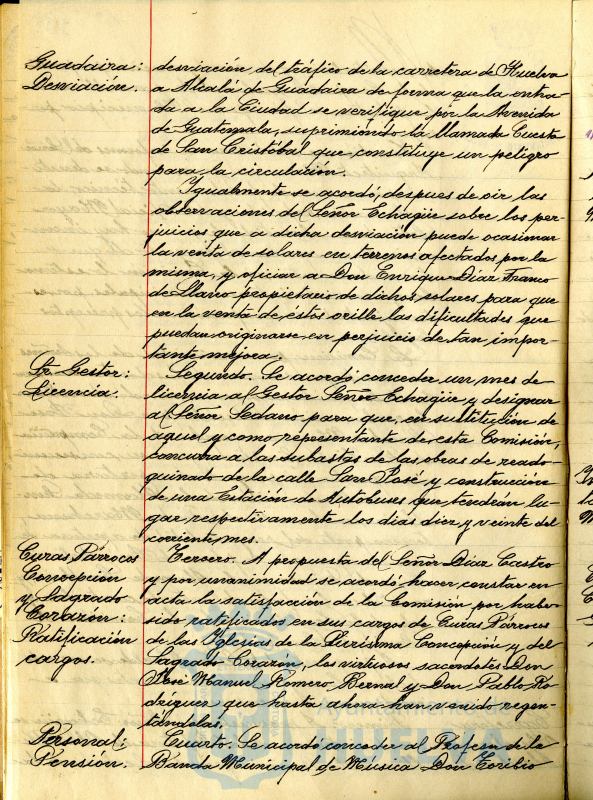 Guadaira: desviación del tráfico de la carretera de Huelva
Desviación. a Alcalá de Guadaira de forma que la entra-
da a la Ciudad se verifique por la Avenida
de Guatemala, suprimiéndo la llamada Cuesta
de San Cristóbal que constituye un peligro
para la circulación.
Igualmente se acordó, despues de oir las
observaciones del Señor Echagüe sobre los per-
juicios que a dicha desviación puede ocasionar
la venta de solares en terrenos afectados por la
misma, y oficiar a Don Enrique Díaz Franco
de Llano propietario de dichos solares para que
en la venta de estos orille las dificultades que
puedan originarse en perjuicio de tan impor-
tante mejora.
Sr. Gestor: Segundo. Se acordó conceder un mes de
Licencia. licencia al Gestor Señor Echagüe y designar
al Señor Sedano para que, en sustitución de
aquel y como representante de esta Comisión,
concurra a las subastas de las obras de readо-
quinado de la calle San José y construcción
de una Estación de Autobuses que tendrán lu-
gar respectivamente los dias diez y veinte del
corriente mes.
Curas Párrocos Tercero. A propuesta del Señor Díaz Castro
Concepción y por unanimidad se acordó hacer constar en
y Sagrado acta la satisfacción de la Comisión por haber
Corazón: sido ratificados en sus cargos de Curas Párrocos
Ratificación de las Iglesias de la Purísima Concepción y del
cargos. Sagrado Corazón, los virtuosos sacerdotes Don
José Manuel Romero Bernal y Don Pablo Ro-
dríguez que hasta ahora han venido regen-
tándolas.
Personal: Cuarto. Se acordó conceder al Profesor de la
Pensión. Banda Municipal de Música Don Toribio